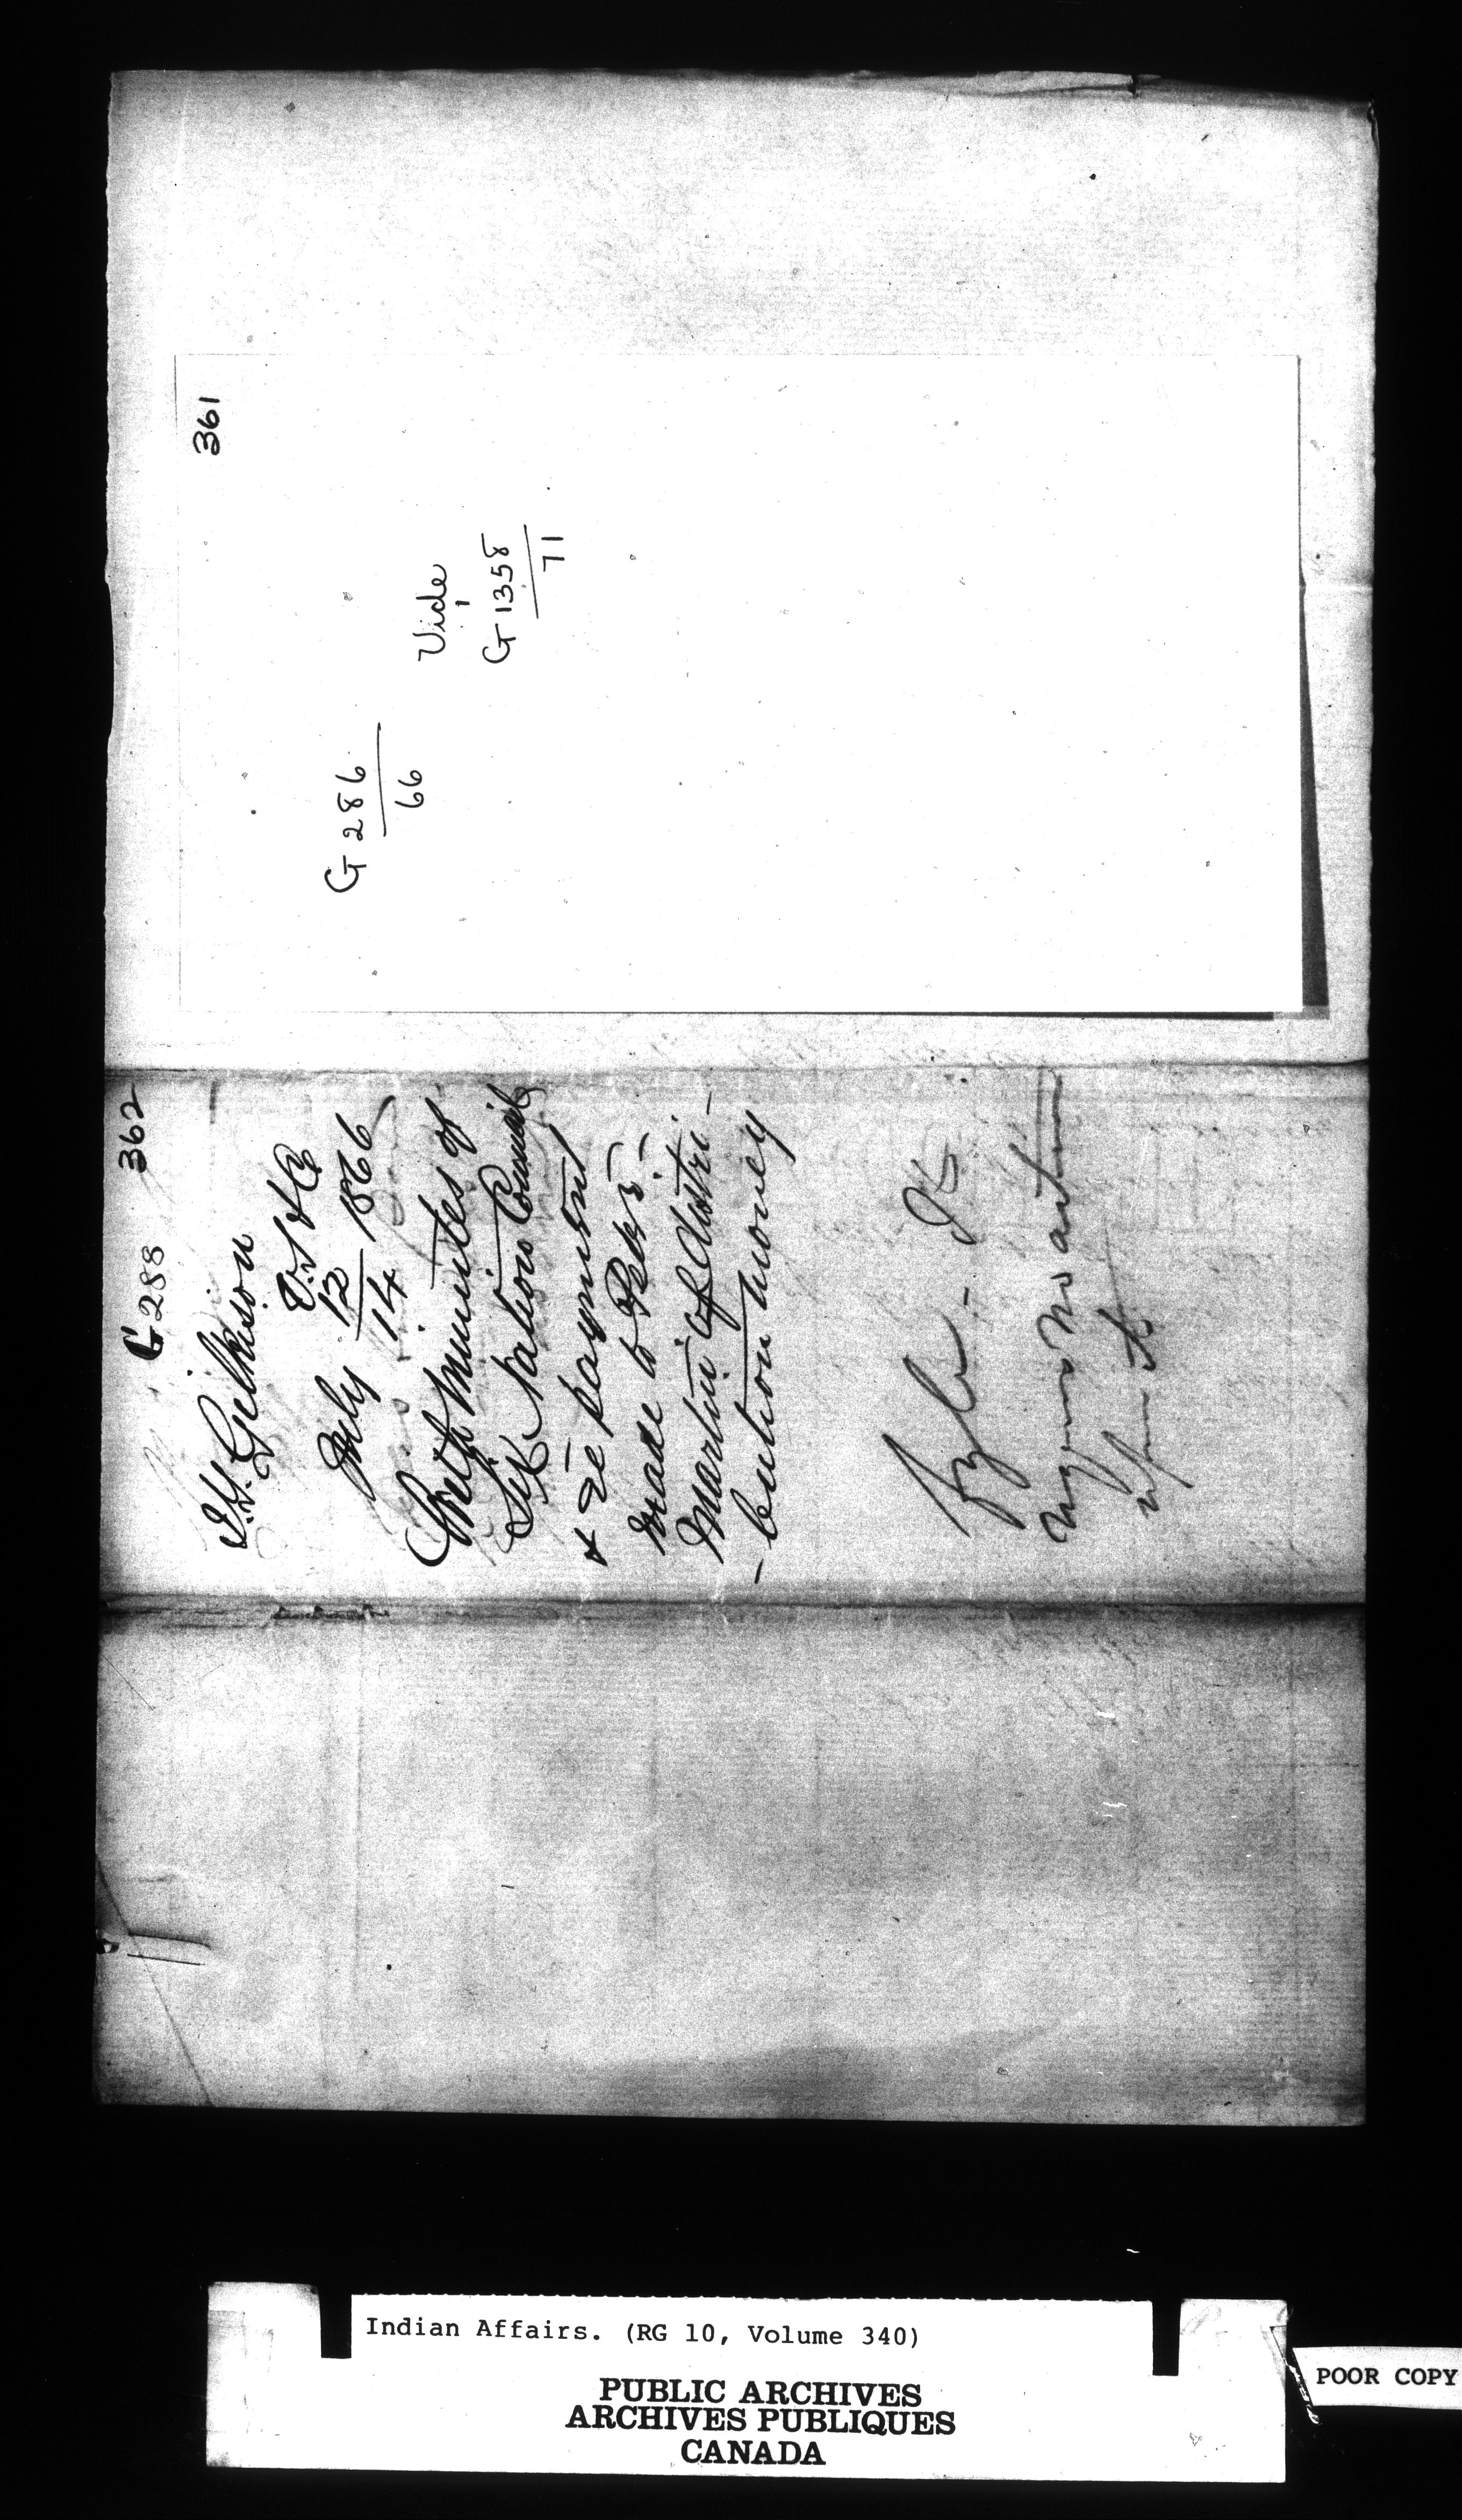 361
G 286
66
Vide
G 1358
71
G 288 362
J.T. Gilkison
V.S. & C
July 12/14 1866
With Minutes of
Six Nation Council
& re payment
made to Peter
Martin of distri-
-bution money
File -
no action
upon it
Indian Affairs. (RG 10, Volume 340)
PUBLIC ARCHIVES
ARCHIVES PUBLIQUES
CANADA
POOR COPY